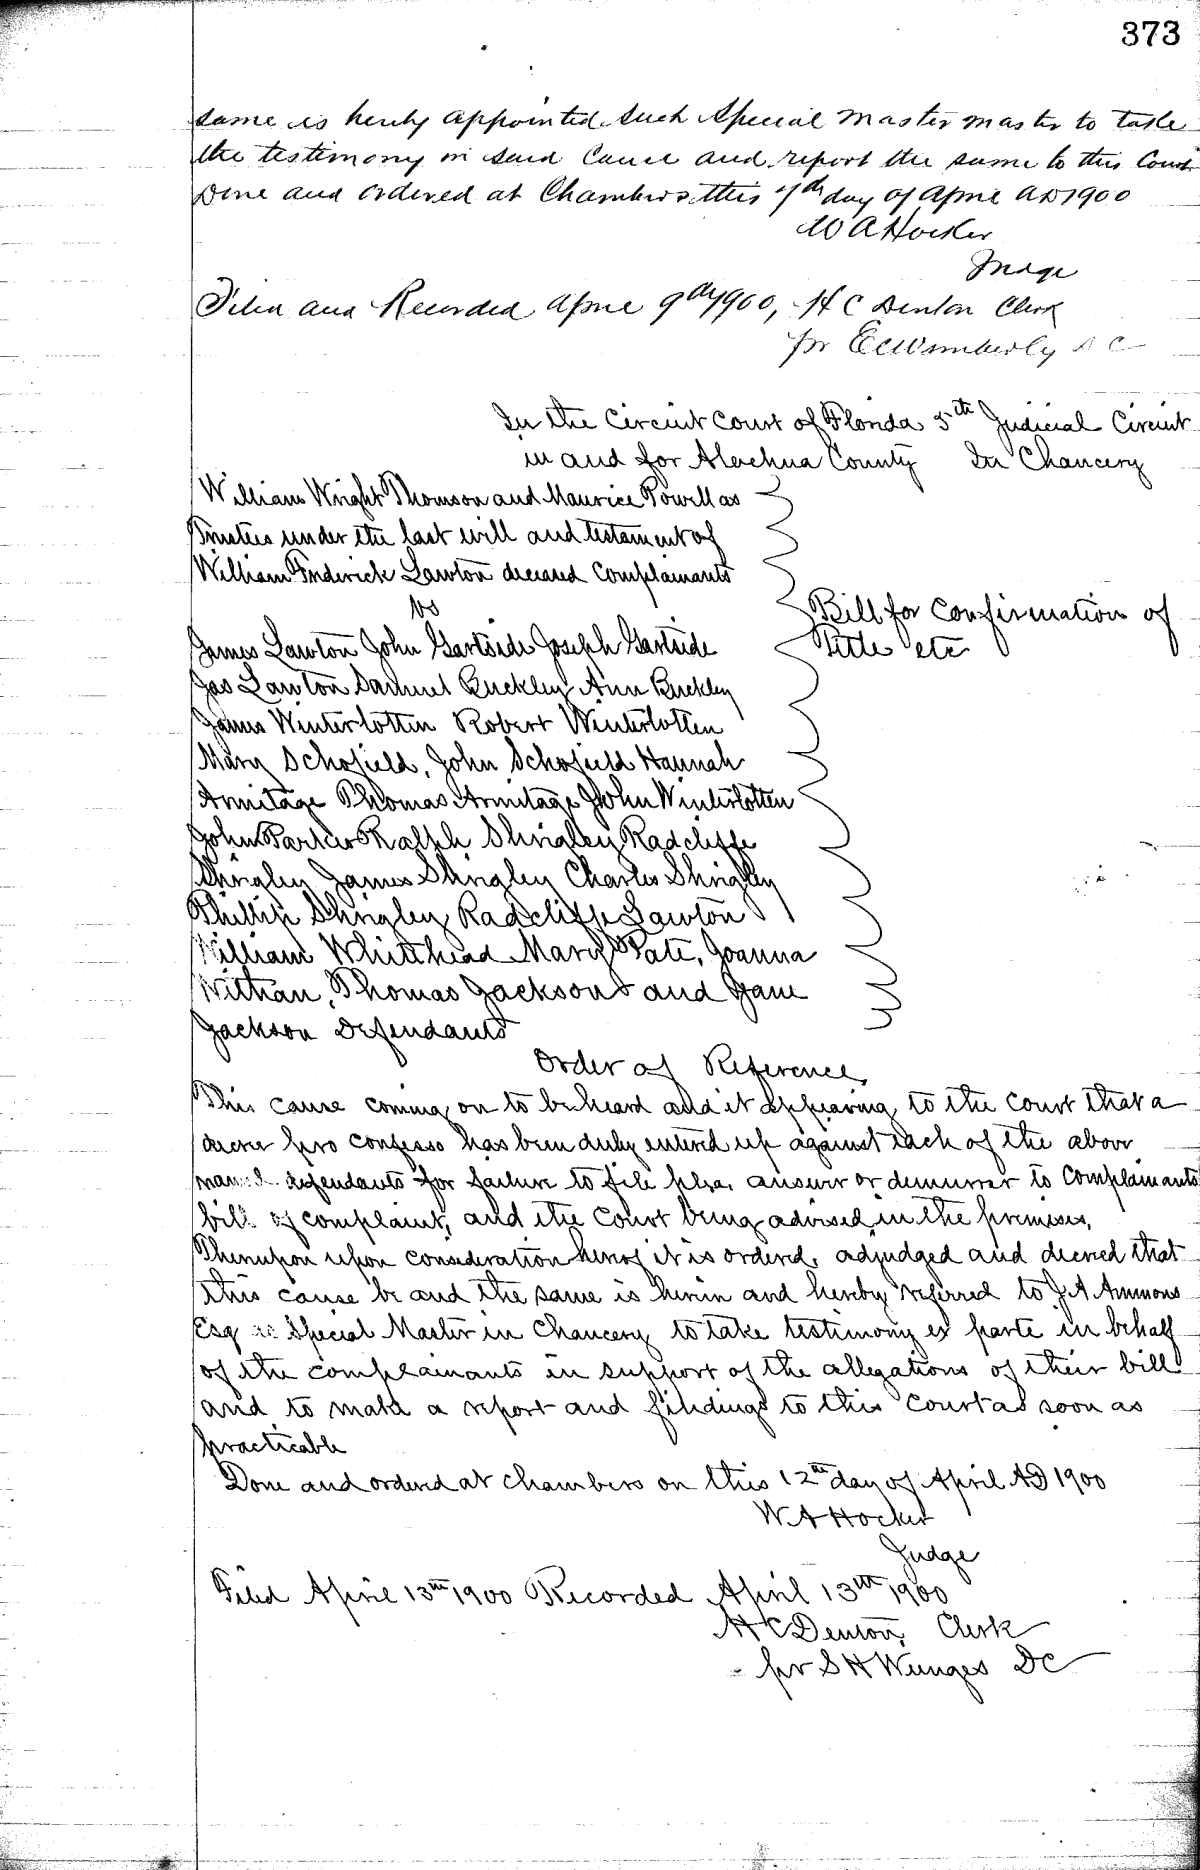 373
same is hereby appointed such Special Master master to take
the testimony in said Cause and report the same to this Court
Done and ordered at Chambers this 7th day of April AD 1900
W A Hocker
Judge
Filed and Recorded April 9th 1900, H C Denton Clerk
pr E C Wimberly D C
In the Circuit Court of Florida 5th Judicial Circuit
in and for Alachua County In Chancery
William Wright Thomson and Maurice Powell as
Trustees under the last will and testament of
William Frederick Lawton deceased Complainants
vs
Bill for Confirmation of
Title etc
James Lawton John Gartside Joseph Gartside
Jas Lawton Samuel Buckley Ann Buckley
James Winterbotten Robert Winterbotten
Mary Schofield, John Schofield Hannah
Armitage Thomas Armitage John Winterbotten
John Parker Ralph Shirgley Radcliffe
Shirgley James Shirgley Charles Shirgley
Phillip Shirgley Radcliffe Lawton
William Whitehead Mary Pate, Joanna
Withan, Thomas Jackson and Jane
Jackson Defendants
Order of Reference
This cause coming on to be heard and it appearing to the Court that a
decree pro confesso has been duly entered up against each of the above
named defendants for failure to file plea, answer or demurrer to Complainants
bill of complaint, and the Court being advised in the premises,
Thereupon upon consideration hereof it is ordered, adjudged and decreed that
this cause be and the same is herein and hereby referred to J A Ammons
Esq as Special Master in Chancery to take testimony ex parte in behalf
of the complainants in support of the allegations of their bill
and to make a report and findings to this Court as soon as
practicable
Done and ordered at Chambers on this 12th day of April AD 1900
W A Hocker
Judge
Filed April 13th 1900 Recorded April 13th 1900
H C Denton, Clerk
pr S H Wienges DC